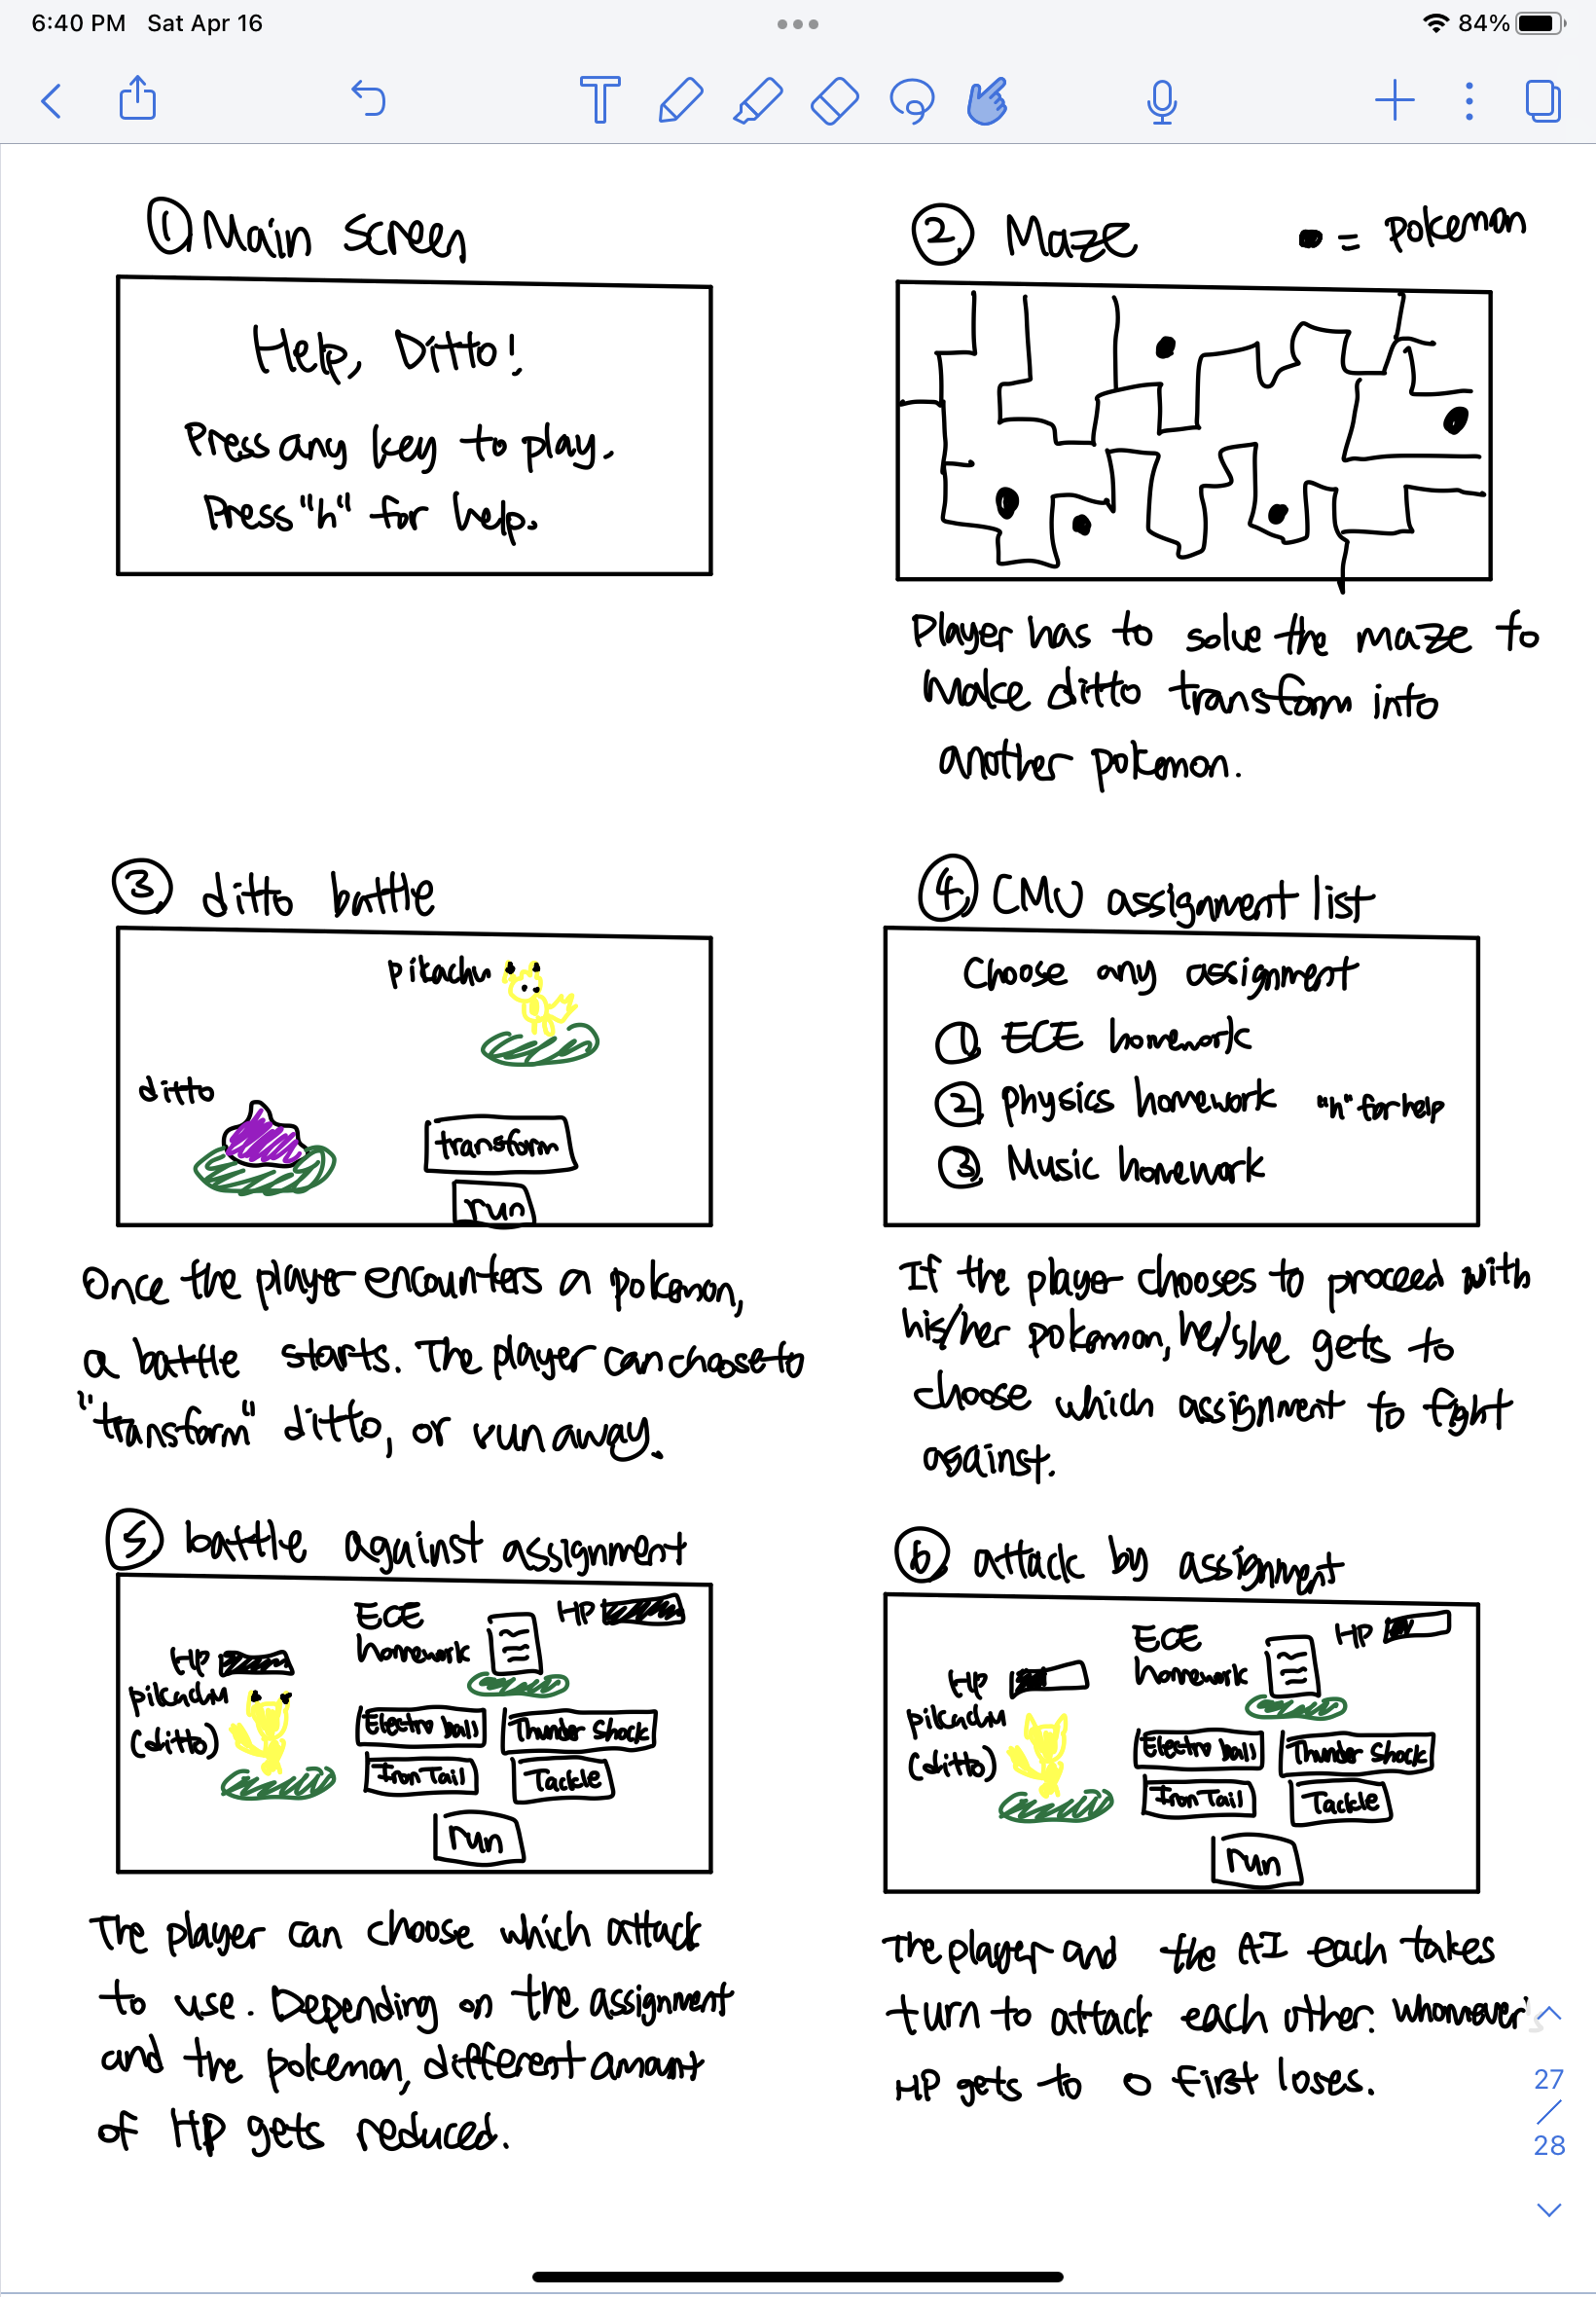 6:40 PM Sat Apr 16
84%
① Main Screen
Help, Ditto!
Press any key to play.
Press "h" for help.
② Maze
= pokemon
Player has to solve the maze to
make ditto transform into
another pokemon.
③ ditto battle
pikachu
ditto
transform
run
Once the player encounters a pokemon,
a battle starts. The player can choose to
"transform" ditto, or run away.
④ CMU assignment list
Choose any assignment
① ECE homework
② physics homework "h" for help
③ Music homework
If the player chooses to proceed with
his/her pokemon, he/she gets to
choose which assignment to fight
against.
⑤ battle against assignment
ECE
homework
HP
HP
pikachu
(ditto)
Electro ball
Thunder Shock
Iron Tail
Tackle
run
The player can choose which attack
to use. Depending on the assignment
and the pokemon, different amount
of HP gets reduced.
⑥ attack by assignment
ECE
homework
HP
HP
pikachu
(ditto)
Electro ball
Thunder Shock
Iron Tail
Tackle
run
The player and the AI each takes
turn to attack each other. whomever's
HP gets to 0 first loses.
27
/
28